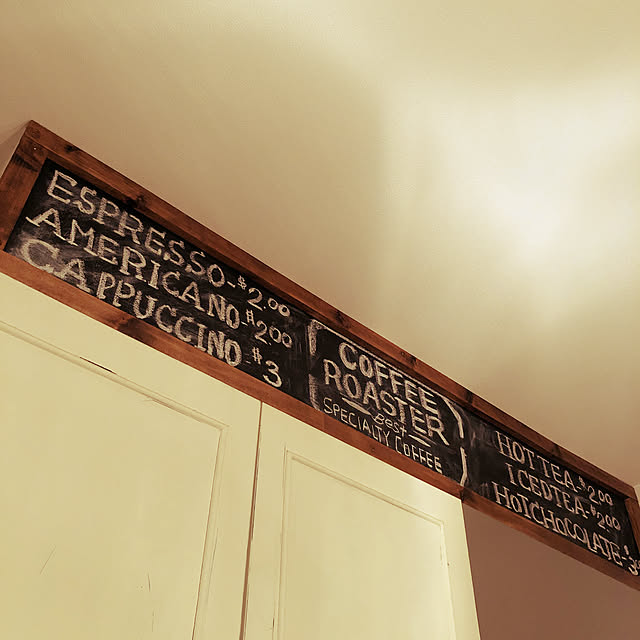 ESPRESSO-$2.00
AMERICANO-$2.00
CAPPUCCINO-$3
COFFEE
ROASTER
Best
SPECIALTY COFFEE
HOT TEA-$2.00
ICED TEA-$2.00
HOT CHOCOLATE-